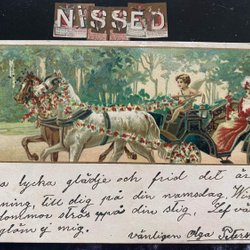 NISSED
s lycka glädje och frid det är
ning, till dig på din namsdag.
ommor strös uppå din stig. Lef
glöm ej mig.
vänligen Olga Peter